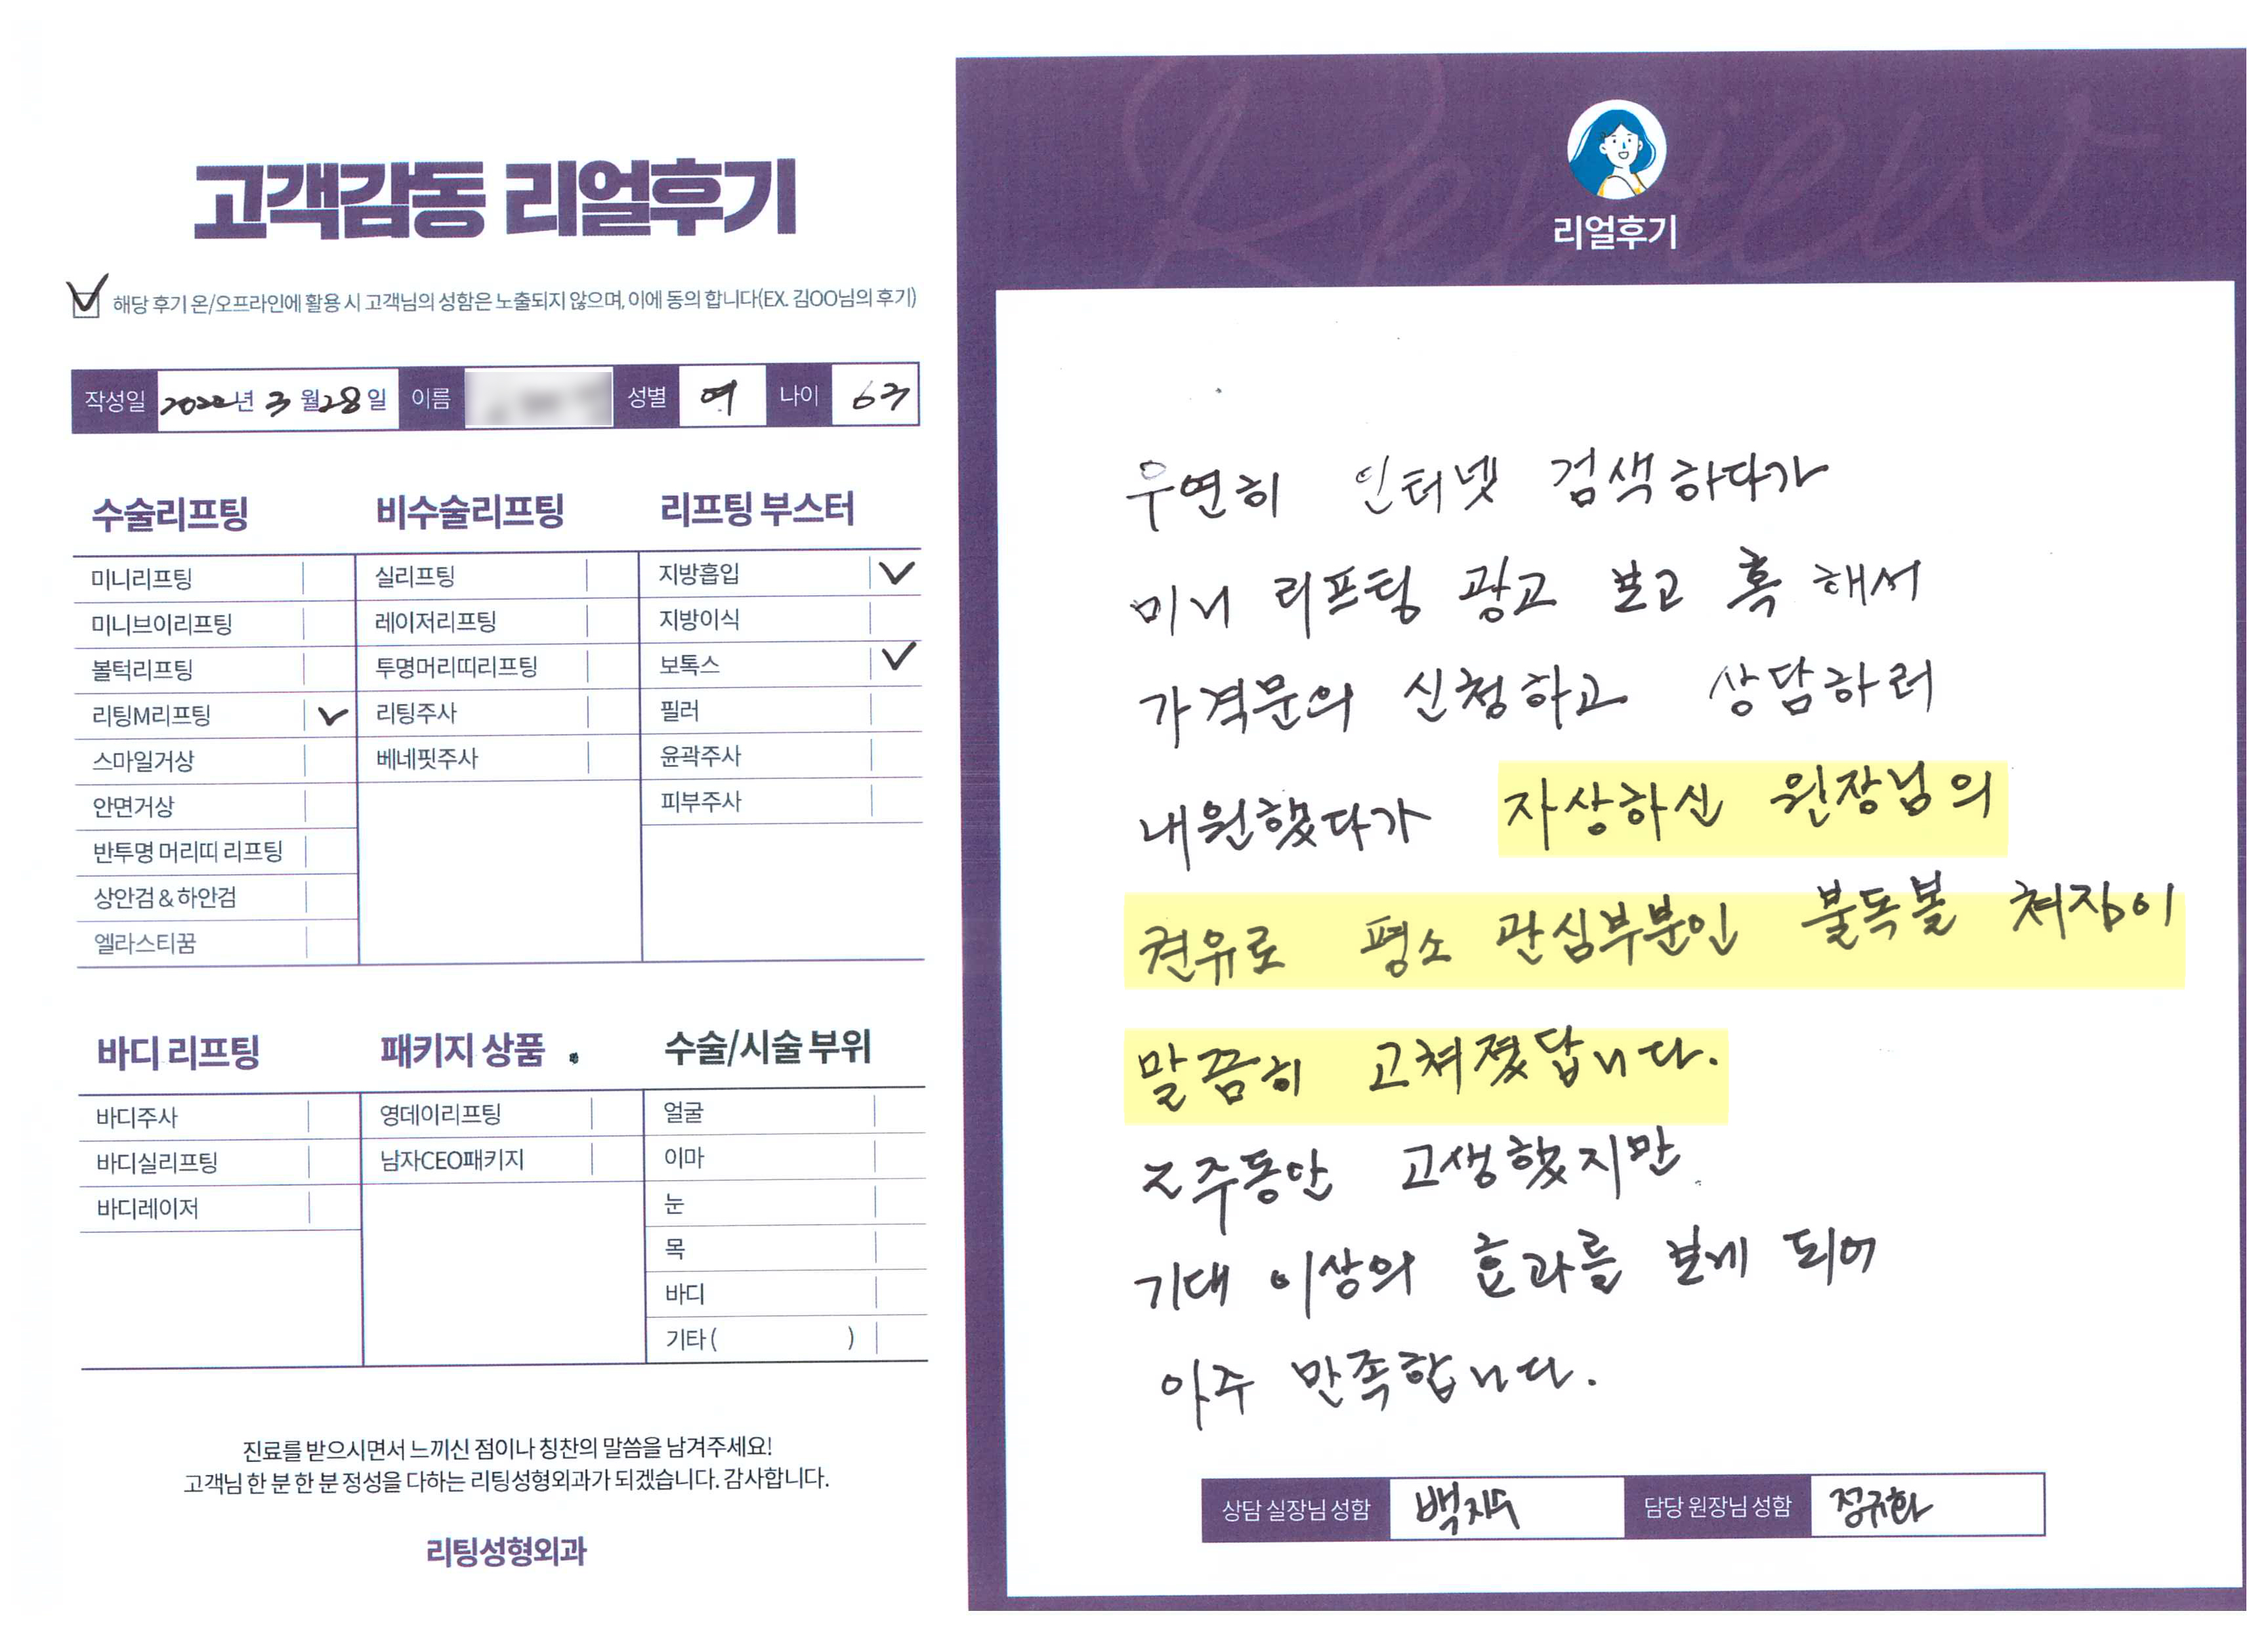 고객감동 리얼후기
해당 후기 온/오프라인에 활용 시 고객님의 성함은 노출되지 않으며, 이에 동의 합니다(EX. 김OO님의 후기)
작성일 2022년 3월 28일 이름 성별 여 나이 63
수술리프팅
미니리프팅
미니브이리프팅
볼턱리프팅
리팅M리프팅
스마일거상
안면거상
반투명 머리띠 리프팅
상안검 & 하안검
엘라스티꿈
비수술리프팅
실리프팅
레이저리프팅
투명머리띠리프팅
리팅주사
베네핏주사
리프팅 부스터
지방흡입
지방이식
보톡스
필러
윤곽주사
피부주사
바디 리프팅
바디주사
바디실리프팅
바디레이저
패키지 상품
영데이리프팅
남자CEO패키지
수술/시술 부위
얼굴
이마
눈
목
바디
기타 ( )
진료를 받으시면서 느끼신 점이나 칭찬의 말씀을 남겨주세요!
고객님 한 분 한 분 정성을 다하는 리팅성형외과가 되겠습니다. 감사합니다.
리팅성형외과
Review
리얼후기
우연히 인터넷 검색하다가
미니 리프팅 광고 보고 혹 해서
가격문의 신청하고 상담하러
내원했다가 자상하신 원장님의
권유로 평소 관심부분인 불독볼 쳐짐이
말끔히 고쳐졌답니다.
2주동안 고생했지만
기대 이상의 효과를 보게 되어
아주 만족합니다.
상담 실장님 성함 담당 원장님 성함 정규화